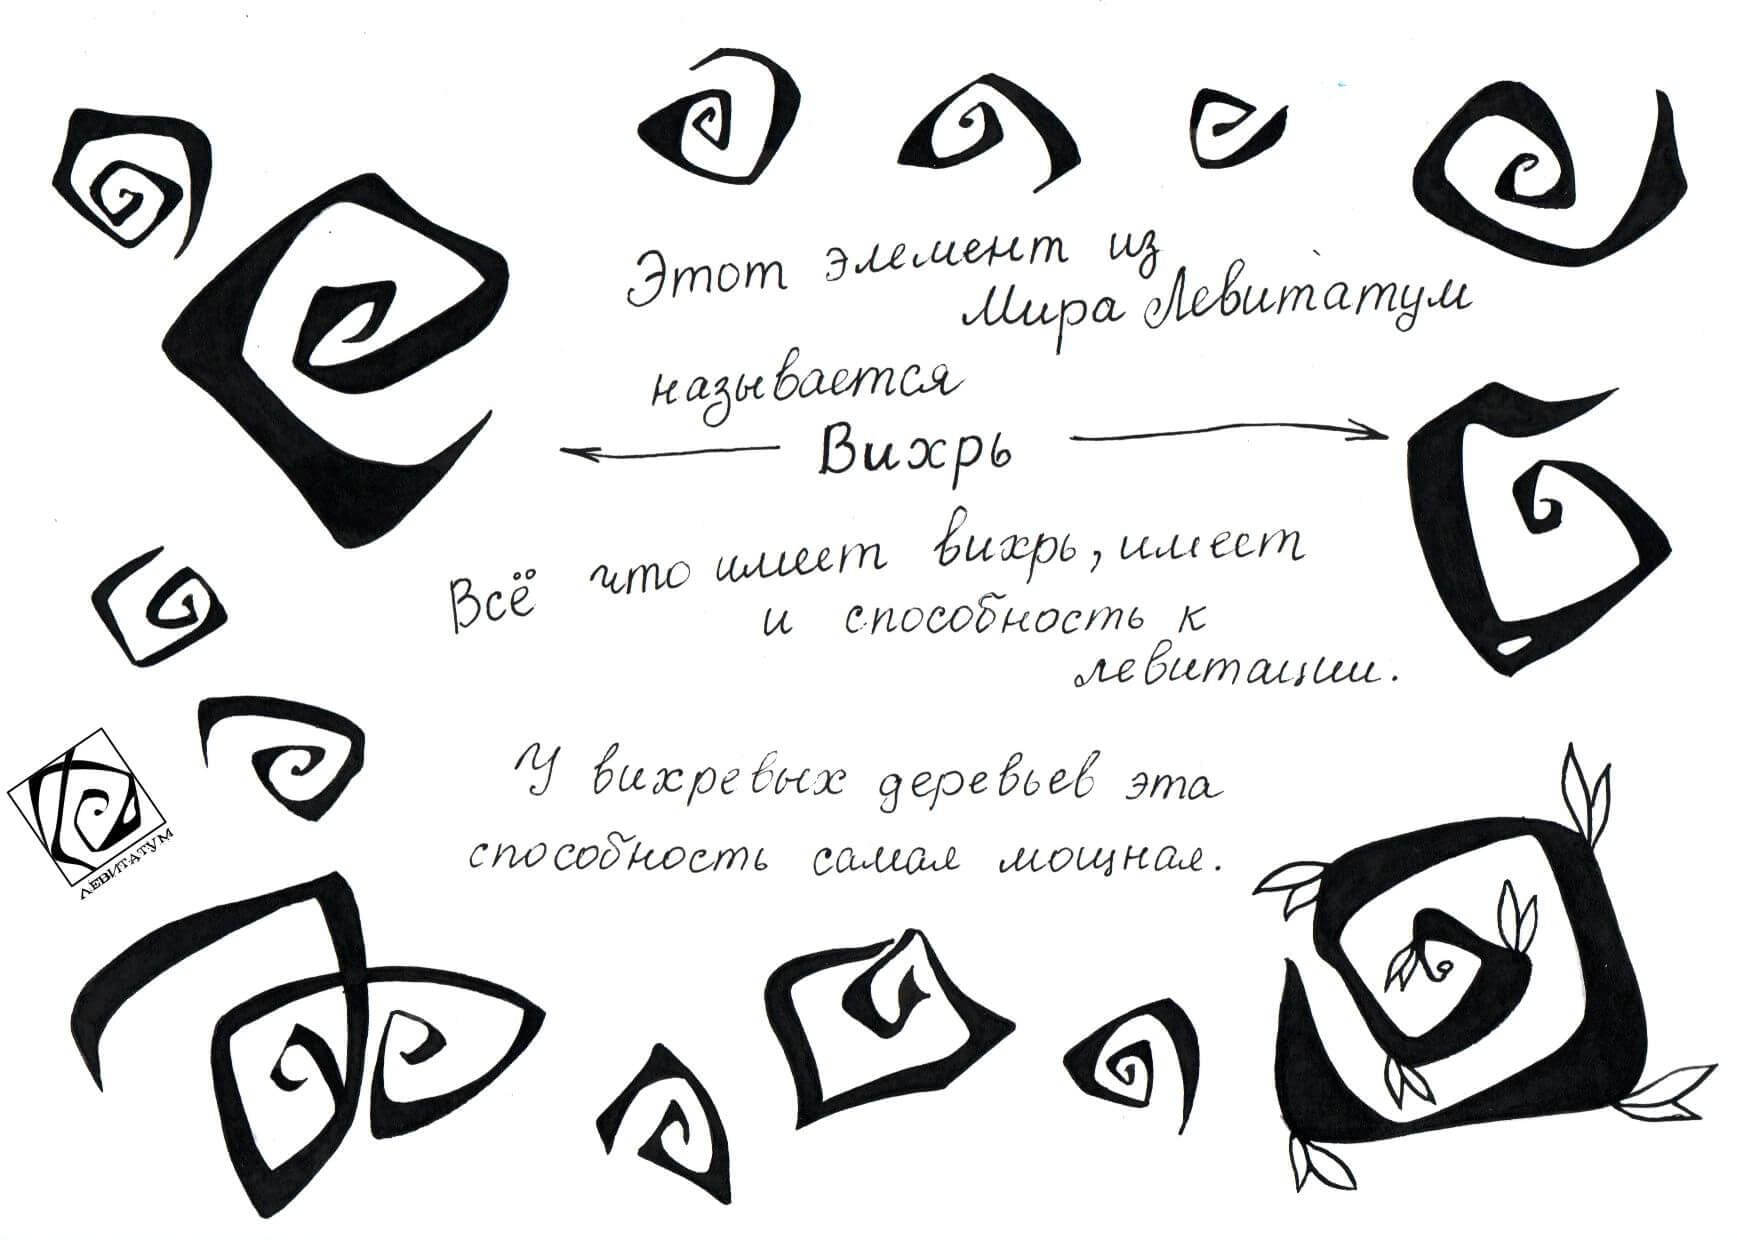 Этот элемент из
Мира Левитатум
называется
Вихрь
Всё что имеет вихрь, имеет
и способность к
левитации.
У вихревых деревьев эта
способность самая мощная.
ЛЕВИТАТУМ